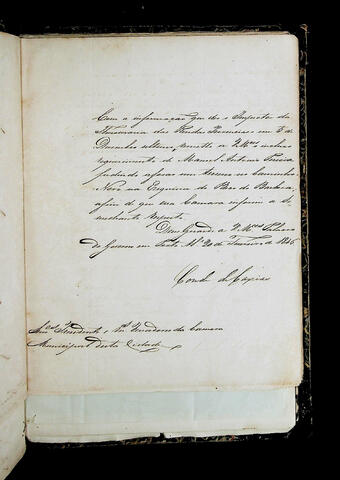 Com a informação que deo o Inspector da
Thesouraria das Rendas Provinciaes em 3 de
Dezembro ultimo, remetto a V.Mces o incluso
requerimento de Manoel Antonio Pereira
pedindo aforar um terreno no Caminho
Novo na Esquina do Beco do Barbosa,
afim de que essa Camara informe a se
melhante respeito.
Deos Guarde a V.Mces Palacio
do Governo em Porto Al. 20 de Fevereiro de 1846
Conde de Caxias
Snres Presidente e Vereadores da Camara
Municipal desta Cidade